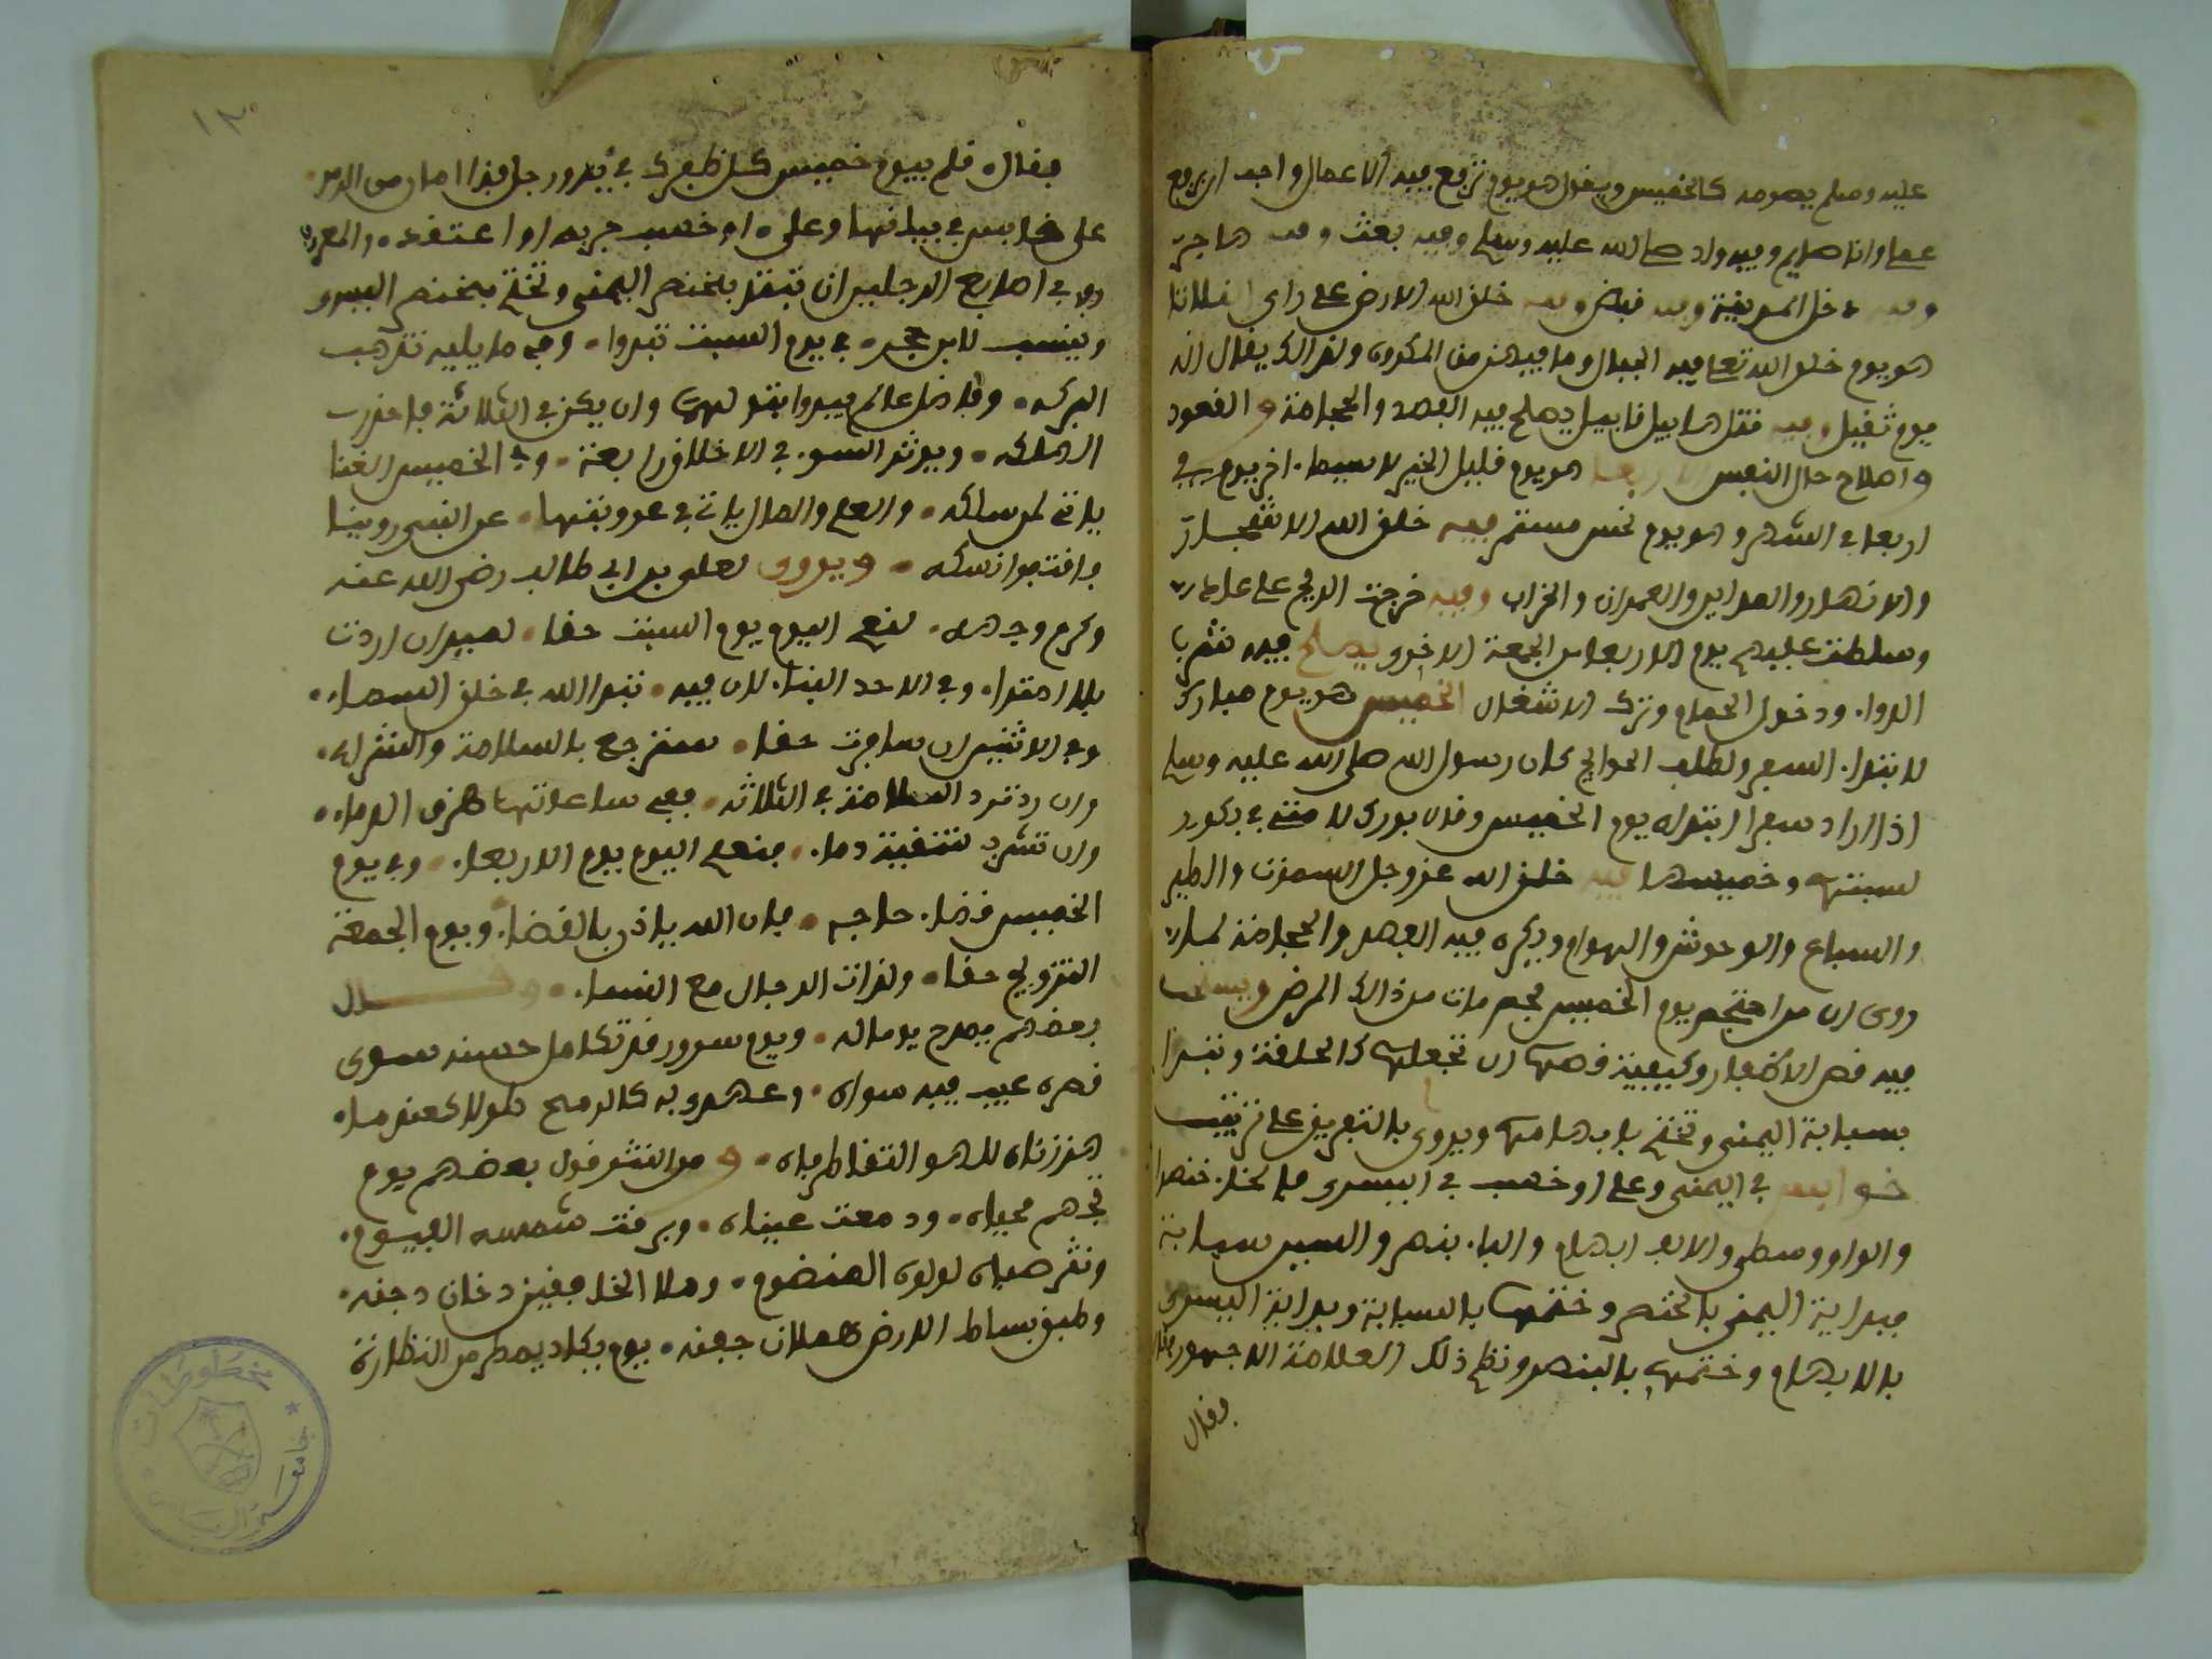 عليه وسلم يصومه كالخميس ويقول هو يوم ترفع فيه الاعمال واحب ان يرفع
عملي وانا صايم وفيه ولد صلى الله عليه وسلم وفيه بعث وفيه هاجر
وفيه دخل المدينة وفيه قبض وفيه خلق الله الارض على راي الثلاثا
هو يوم خلق الله تعلى فيه الجبال وما فيهن من المكروه ولذالك يقال انه
يوم ثقيل وفيه قتل هابيل قابيل يصلح فيه الفصد والحجامة والقعود
واصلاح حال النفس الاربعا هو يوم قليل الخير لا سيما اخر يوم
اربعا في الشهر وهو يوم نحس مستمر فيه خلق الله الاشجار
والانهار والمداين والعمران والخراب وفيه خرجت الريح على عاد
وسلطت عليهم يوم الاربعا الى الجمعة الاخرى يصلح فيه شرب
الدواء ودخول الحمام وترك الاشغال الخميس هو يوم مبارك
لابتداء السفر ولطلب الحوائج كان رسول الله صلى الله عليه وسلم
اذا اراد سفرا ابتداه يوم الخميس وقال بورك لامتي في بكور
سبتها وخميسها فيه خلق الله عز وجل السموات والطير
والسباع والوحوش والهوام ويكره فيه الفصد والحجامة لما
روى ان من احتجم يوم الخميس فحم مات من ذالك المرض ويستحب
فيه قص الاظفار وكيفية قصها ان تجعلها كالحلقة وتبدا
بسبابة اليمنى وتختم بابهامها ويروى بالتفريق على ترتيب
خوابس في اليمنى وعلى اوخسب في اليسرى فالخاء خنصر
والواو وسطى والالف ابهام والباء بنصر والسين سبابة
فبداية اليمنى بالخنصر وختمها بالسبابة وبداية اليسرى
بالابهام وختمها بالبنصر ونظم ذلك العلامة الاجهوري
فقال
١٣٠
فقال قلم بيوم خميس كل ظفرك في يد ورجل فذا امان من الرمد
على خوابس في يمناها وعلى اوخسب اعتقد
وفي اصابع الرجلين ان تبتد بخنصر اليمنى وتختم بخنصر اليسرى
وينسب لابن حجر في يوم السبت تبدوا وفي ما يليه تذهب
البركه وفاضل عالم يبدوا بتولهما وان يكن في الثلاثة فاحذرب
الهلكه ويورث السوء في الاخلاق رابعة وفي الخميس الغنا
ياتي لمن سلكه والعلم والمال ياتي في عروبتها عن النبي روينا
فاقتفوا نسكه ويروى لعلي بن ابي طالب رضي الله عنه
وكرم وجهه لنعم اليوم يوم السبت حقا لصيد ان اردت
بلا امتراء وفي الاحد البناء لان فيه تبدا الله في خلق السماء
وفي الاثنين ان سافرت حقا سترجع بالسلامة والثراء
وان ترد الحجامة في الثلاثه ففي ساعاتها هرق الدماء
وان تشرب لتنقية دواء فنعم اليوم يوم الاربعاء وفي يوم
الخميس قضاء حاجه فان الله ياذن بالقضاء ويوم الجمعة
التزويج حقا ولذات الرجال مع النساء وقال
بعضهم يمدح يوما له ويوم سرور قد تكامل حسنه سوى
قصره عيب فيه سواه وعهدي به كالرمح طولا فعندما
هززناه للهو التقا طرفاه ومن النثر قول بعضهم يوم
تجهم محياه ودمعت عيناه وبرقت شمسه الغيوم
ونثر صباه لولوه المنضوم وملا الخافقين دخان دجنه
وطبق بساط الارض هملان جفنه يوم يكاد يمطر من النظارة
مخطوطات
جامعة الرياض